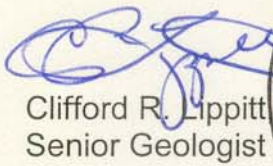 Clifford R. Lippitt
Senior Geologist